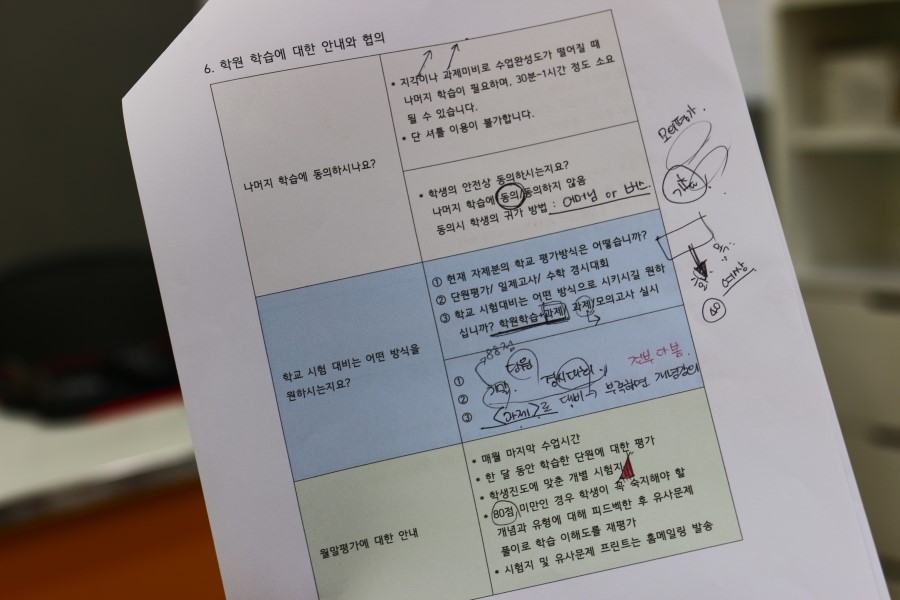 6. 학원 학습에 대한 안내와 협의
나머지 학습에 동의하시나요?
• 지각이나 과제미비로 수업완성도가 떨어질 때
나머지 학습이 필요하며, 30분~1시간 정도 소요
될 수 있습니다.
• 단 셔틀 이용이 불가합니다.
• 학생의 안전상 동의하시는지요?
나머지 학습에 동의/동의하지 않음
동의시 학생의 귀가 방법 : 어머님 or 버스.
모의평가.
학교 시험 대비는 어떤 방식을
원하시는지요?
① 현재 자제분의 학교 평가방식은 어떻습니까?
② 단원평가/ 일제고사/ 수학 경시대회
③ 학교 시험대비는 어떤 방식으로 시키시길 원하
십니까? 학원학습+과제/ 과제/모의고사 실시
①
② 경시대회 전부 다 봄.
③ <과제>로 대비 부족하면
80
월말평가에 대한 안내
• 매월 마지막 수업시간
• 한 달 동안 학습한 단원에 대한 평가
• 학생진도에 맞춘 개별 시험지
• 80점 미만인 경우 학생이 꼭 숙지해야 할
개념과 유형에 대해 피드백한 후 유사문제
풀이로 학습 이해도를 재평가
• 시험지 및 유사문제 프린트는 홈메일링 발송